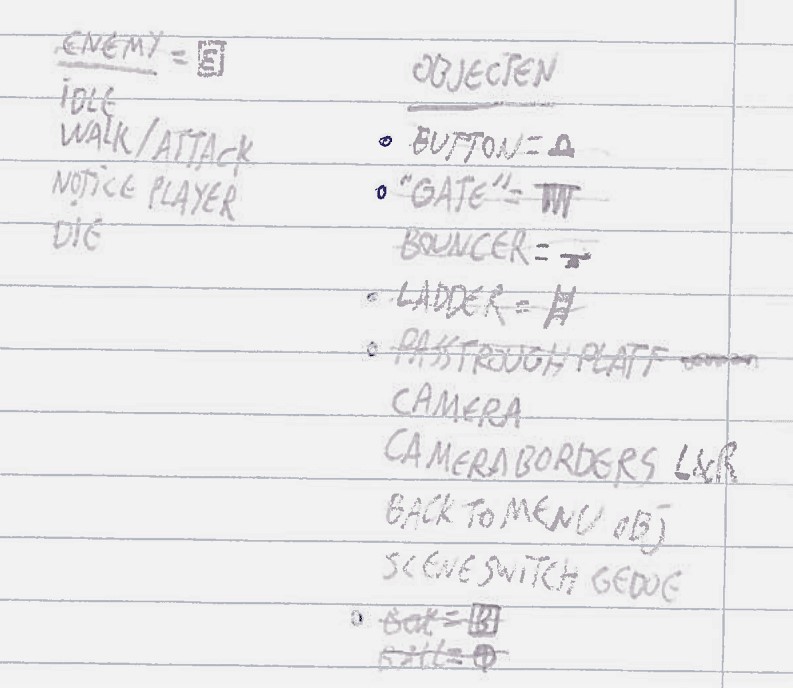 ENEMY = E
IDLE
WALK/ATTACK
NOTICE PLAYER
DIE
OBJECTEN
BUTTON =
"GATE" =
BOUNCER =
LADDER =
PASSTROUGH PLATF
CAMERA
CAMERA BORDERS L&R
BACK TO MENU OBJ
SCENE SWITCH GEDOE
BOX = B
BALL =